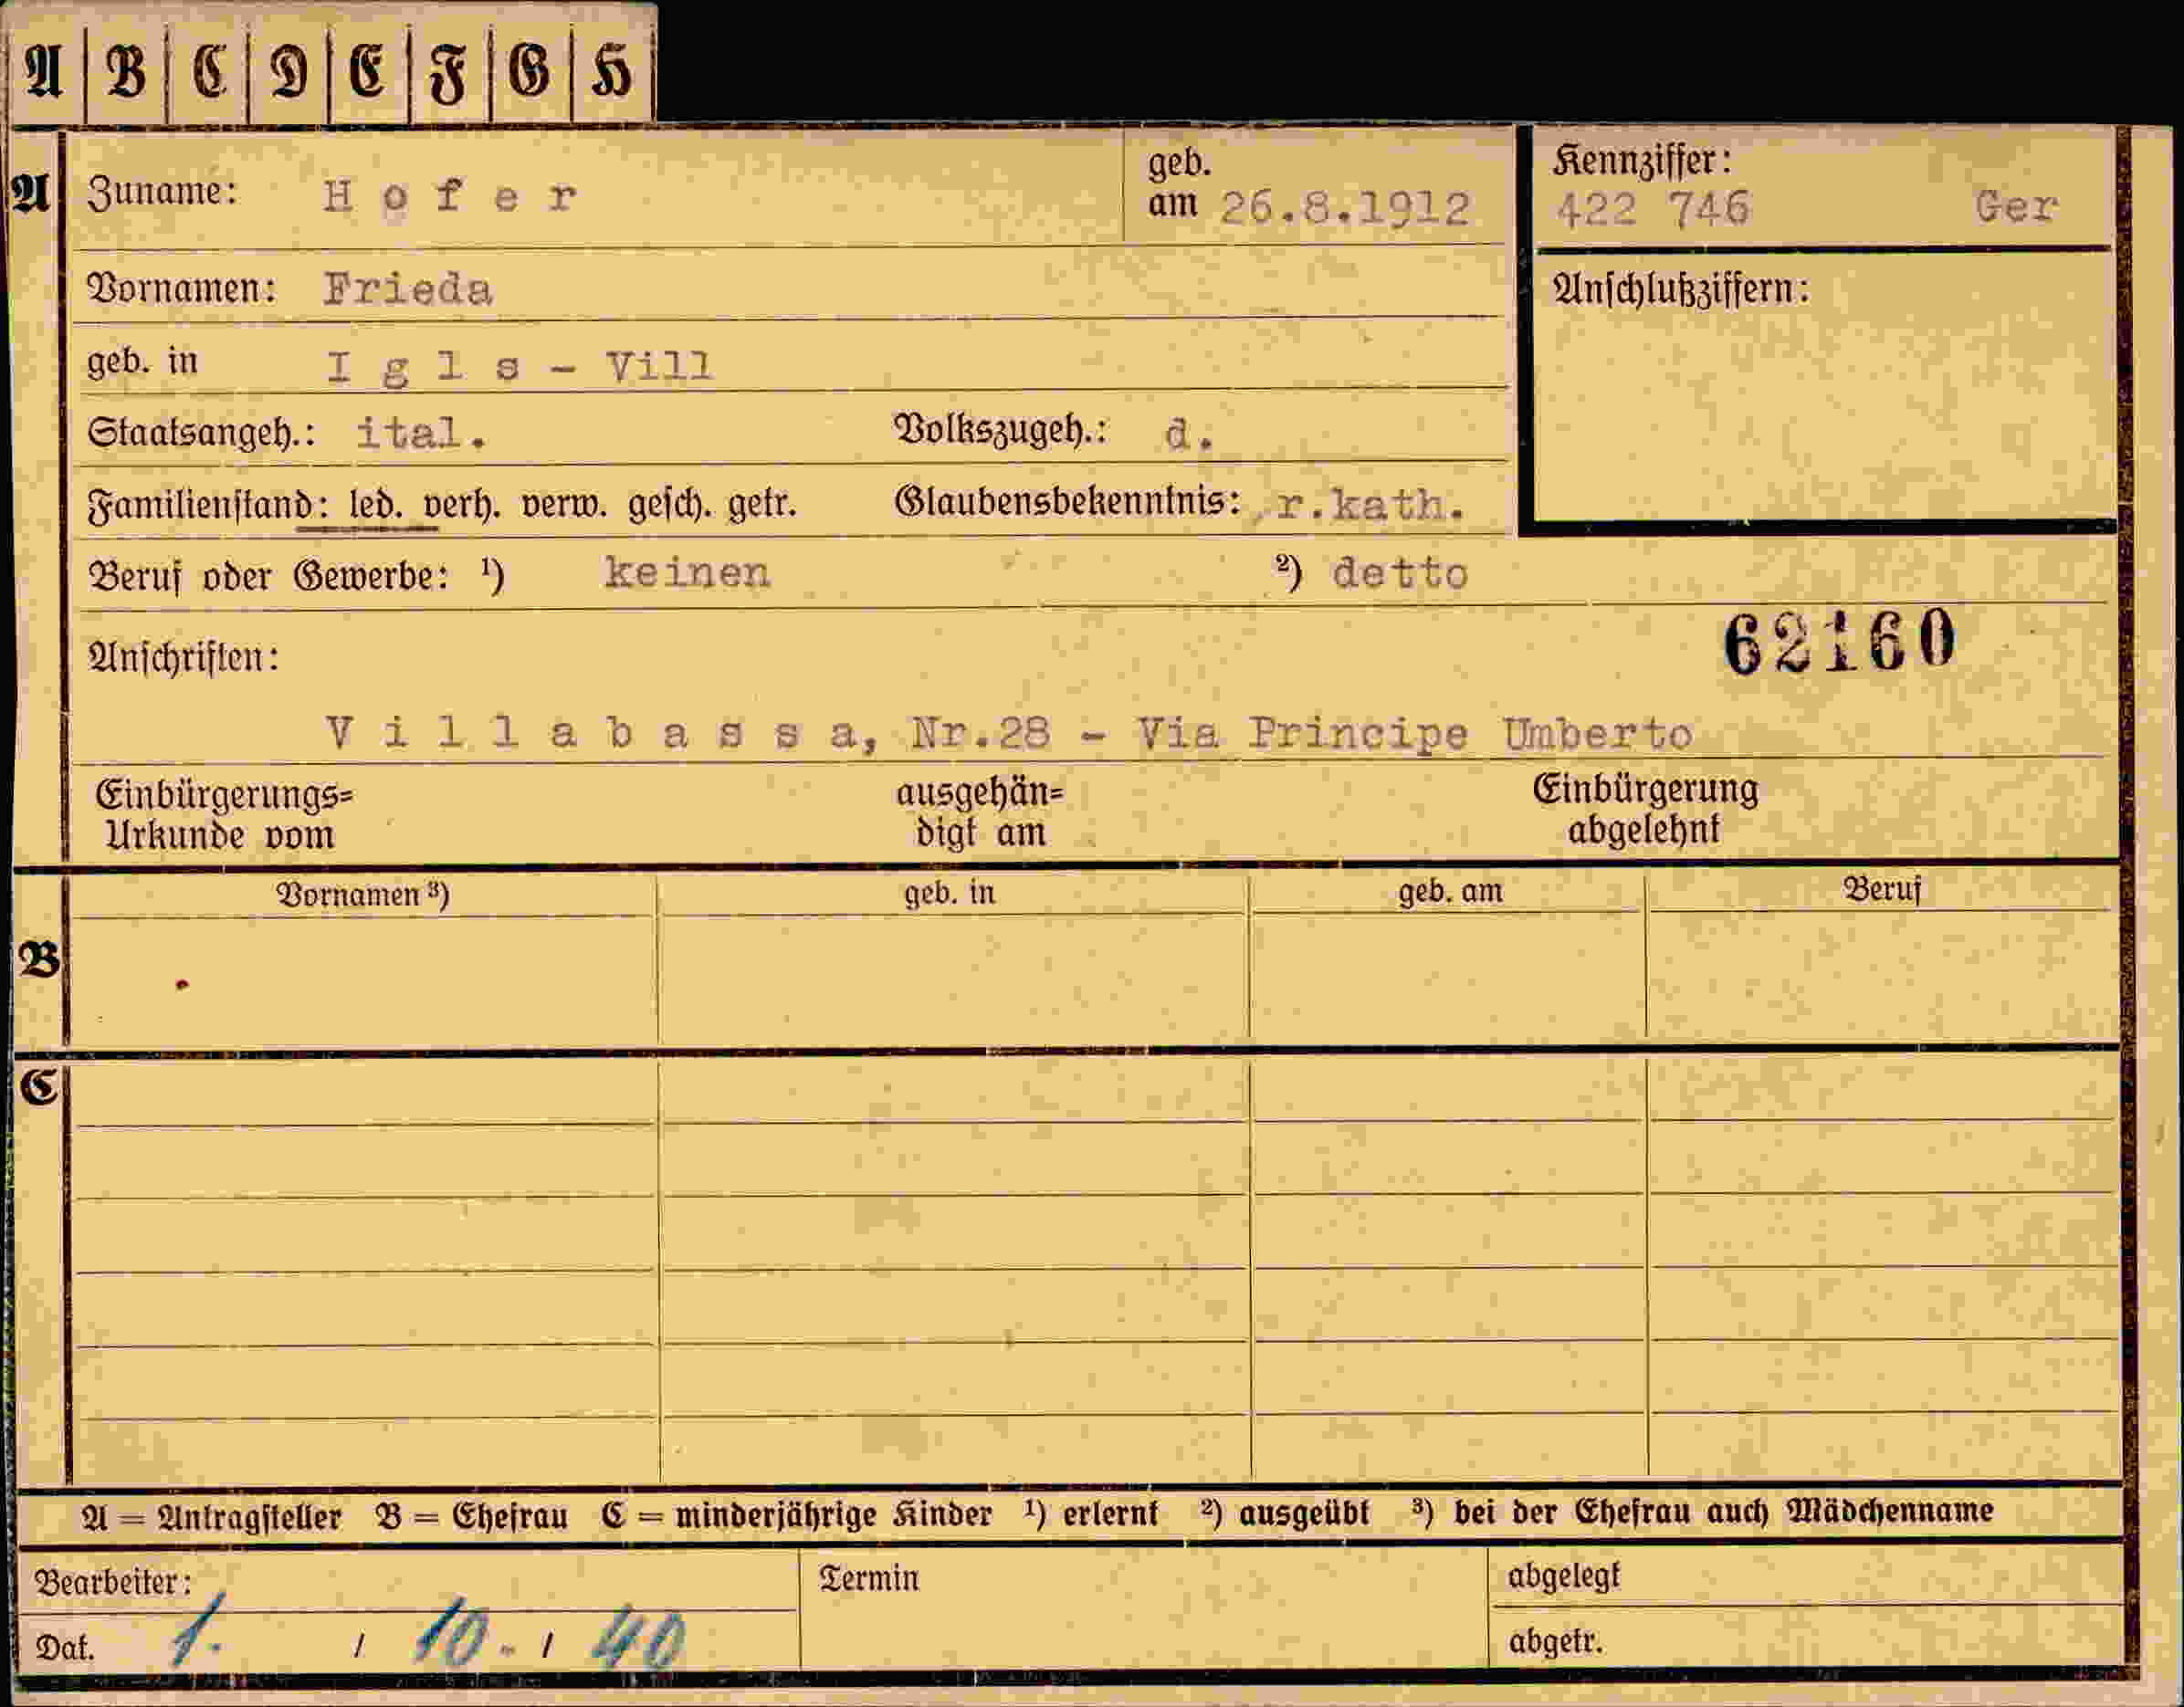 A B C D E F G H
A Zuname: H o f e r geb. am 26.8.1912 Kennziffer: 422 746 Ger
Vornamen: Frieda Anschlußziffern:
geb. in I g l s - Vill
Staatsangeh.: ital. Volkszugeh.: d.
Familienstand: led. verh. verw. gesch. getr. Glaubensbekenntnis: r.kath.
Beruf oder Gewerbe: ¹) keinen ²) detto
62160
Anschriften:
V i l l a b a s s a, Nr.28 - Via Principe Umberto
Einbürgerungs= ausgehän= Einbürgerung
Urkunde vom digt am abgelehnt
Vornamen ³) geb. in geb. am Beruf
B
C
A = Antragsteller B = Ehefrau C = minderjährige Kinder ¹) erlernt ²) ausgeübt ³) bei der Ehefrau auch Mädchenname
Bearbeiter: Termin abgelegt
Dat. 1. / 10. / 40 abgetr.